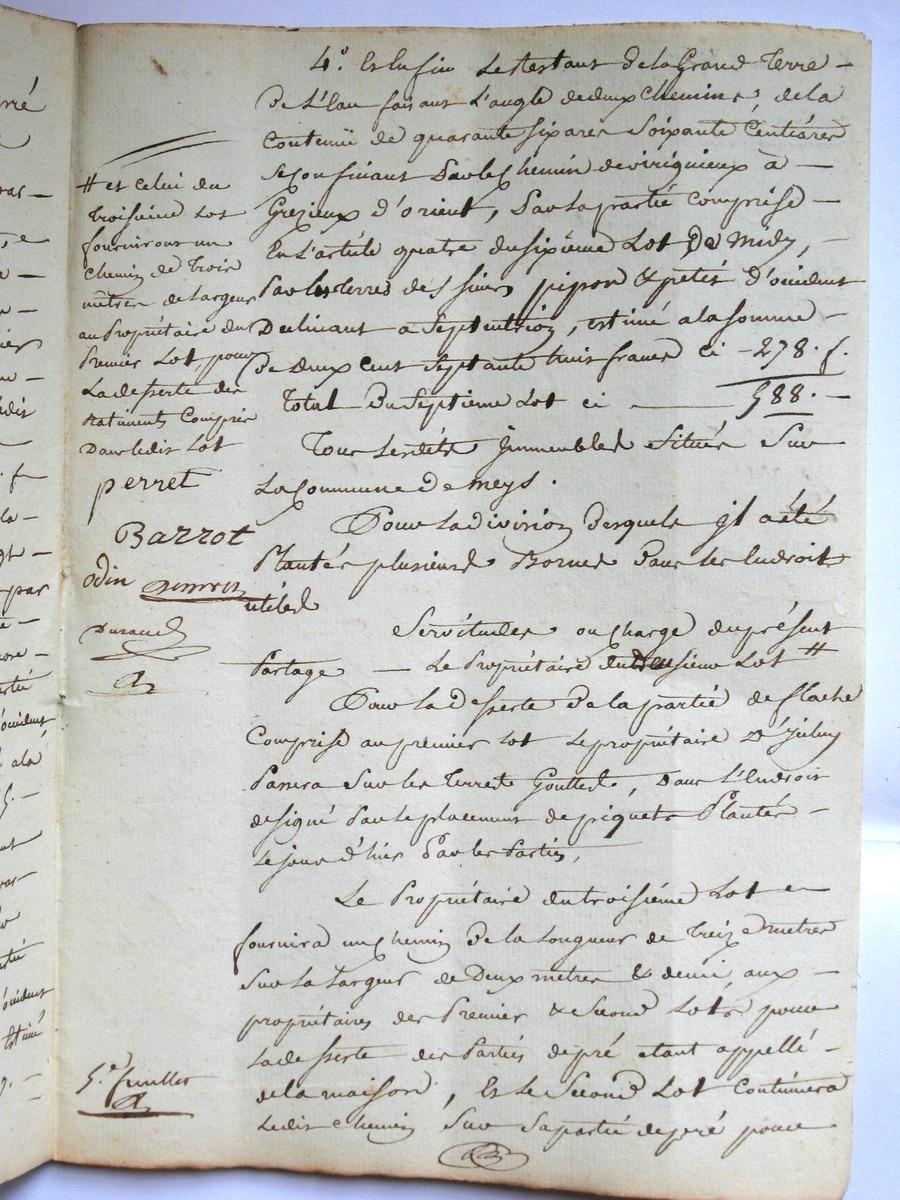 4.° Et Enfin le restant de la Grand Terre –
de L'Eau faisant L'angle de deux chemins, de la
Contenue de quarante six ares Soixante Centiares
Se Confinant Par le Chemin de viriqnieux à –
Grezieux d'orient, Par la partie Comprise –
En L'article quatre du sixieme Lot, De Midy, –
Par les terres des sieurs pipon & petit d'occident
Declinant a Septentrion, estimé a la somme –
de Deux cent Septante huit francs Ci – 278. f.
Total Du Septieme Lot ci ——— 588. –
Tous lesdits Immeubles Situés Sur
La Commune De meys.
Pour la division desquels jl a été
Plantés plusieurs Bornes Dans les Endroits
utiles
Servitudes ou Charge du présent
Partage — Le Propriétaire du deusieme Lot #
Pour la desserte De la partie de flache
Comprise au premier Lot le propriétaire D'jcelui
Passera Sur les Terres Gouttes, Dans L'Endroit
designé Par le placement de piquets Plantés –
Le jour d'hier Par les Parties,
Le Propriétaire du troisiéme Lot –
fournira un chemin De la Longueur de Treize metres
Sur La Largeur de Deux metres & demi aux –
propriétaires des Premier & Second Lots pour
La desserte des Parties de pré etant appellé –
de la maison, Et le Second Lot Continuera
Ledit Chemin Sur Sa partie de pré pour
# et Celui du
Troisieme Lot
fourniront un
Chemin de Trois
mètres de Largeur
au Propriétaire du
Premier Lot, pour
La desserte des
Batiments Compris
Dans ledit Lot
perret
Barrot
odin
Durand
5.e feuillet